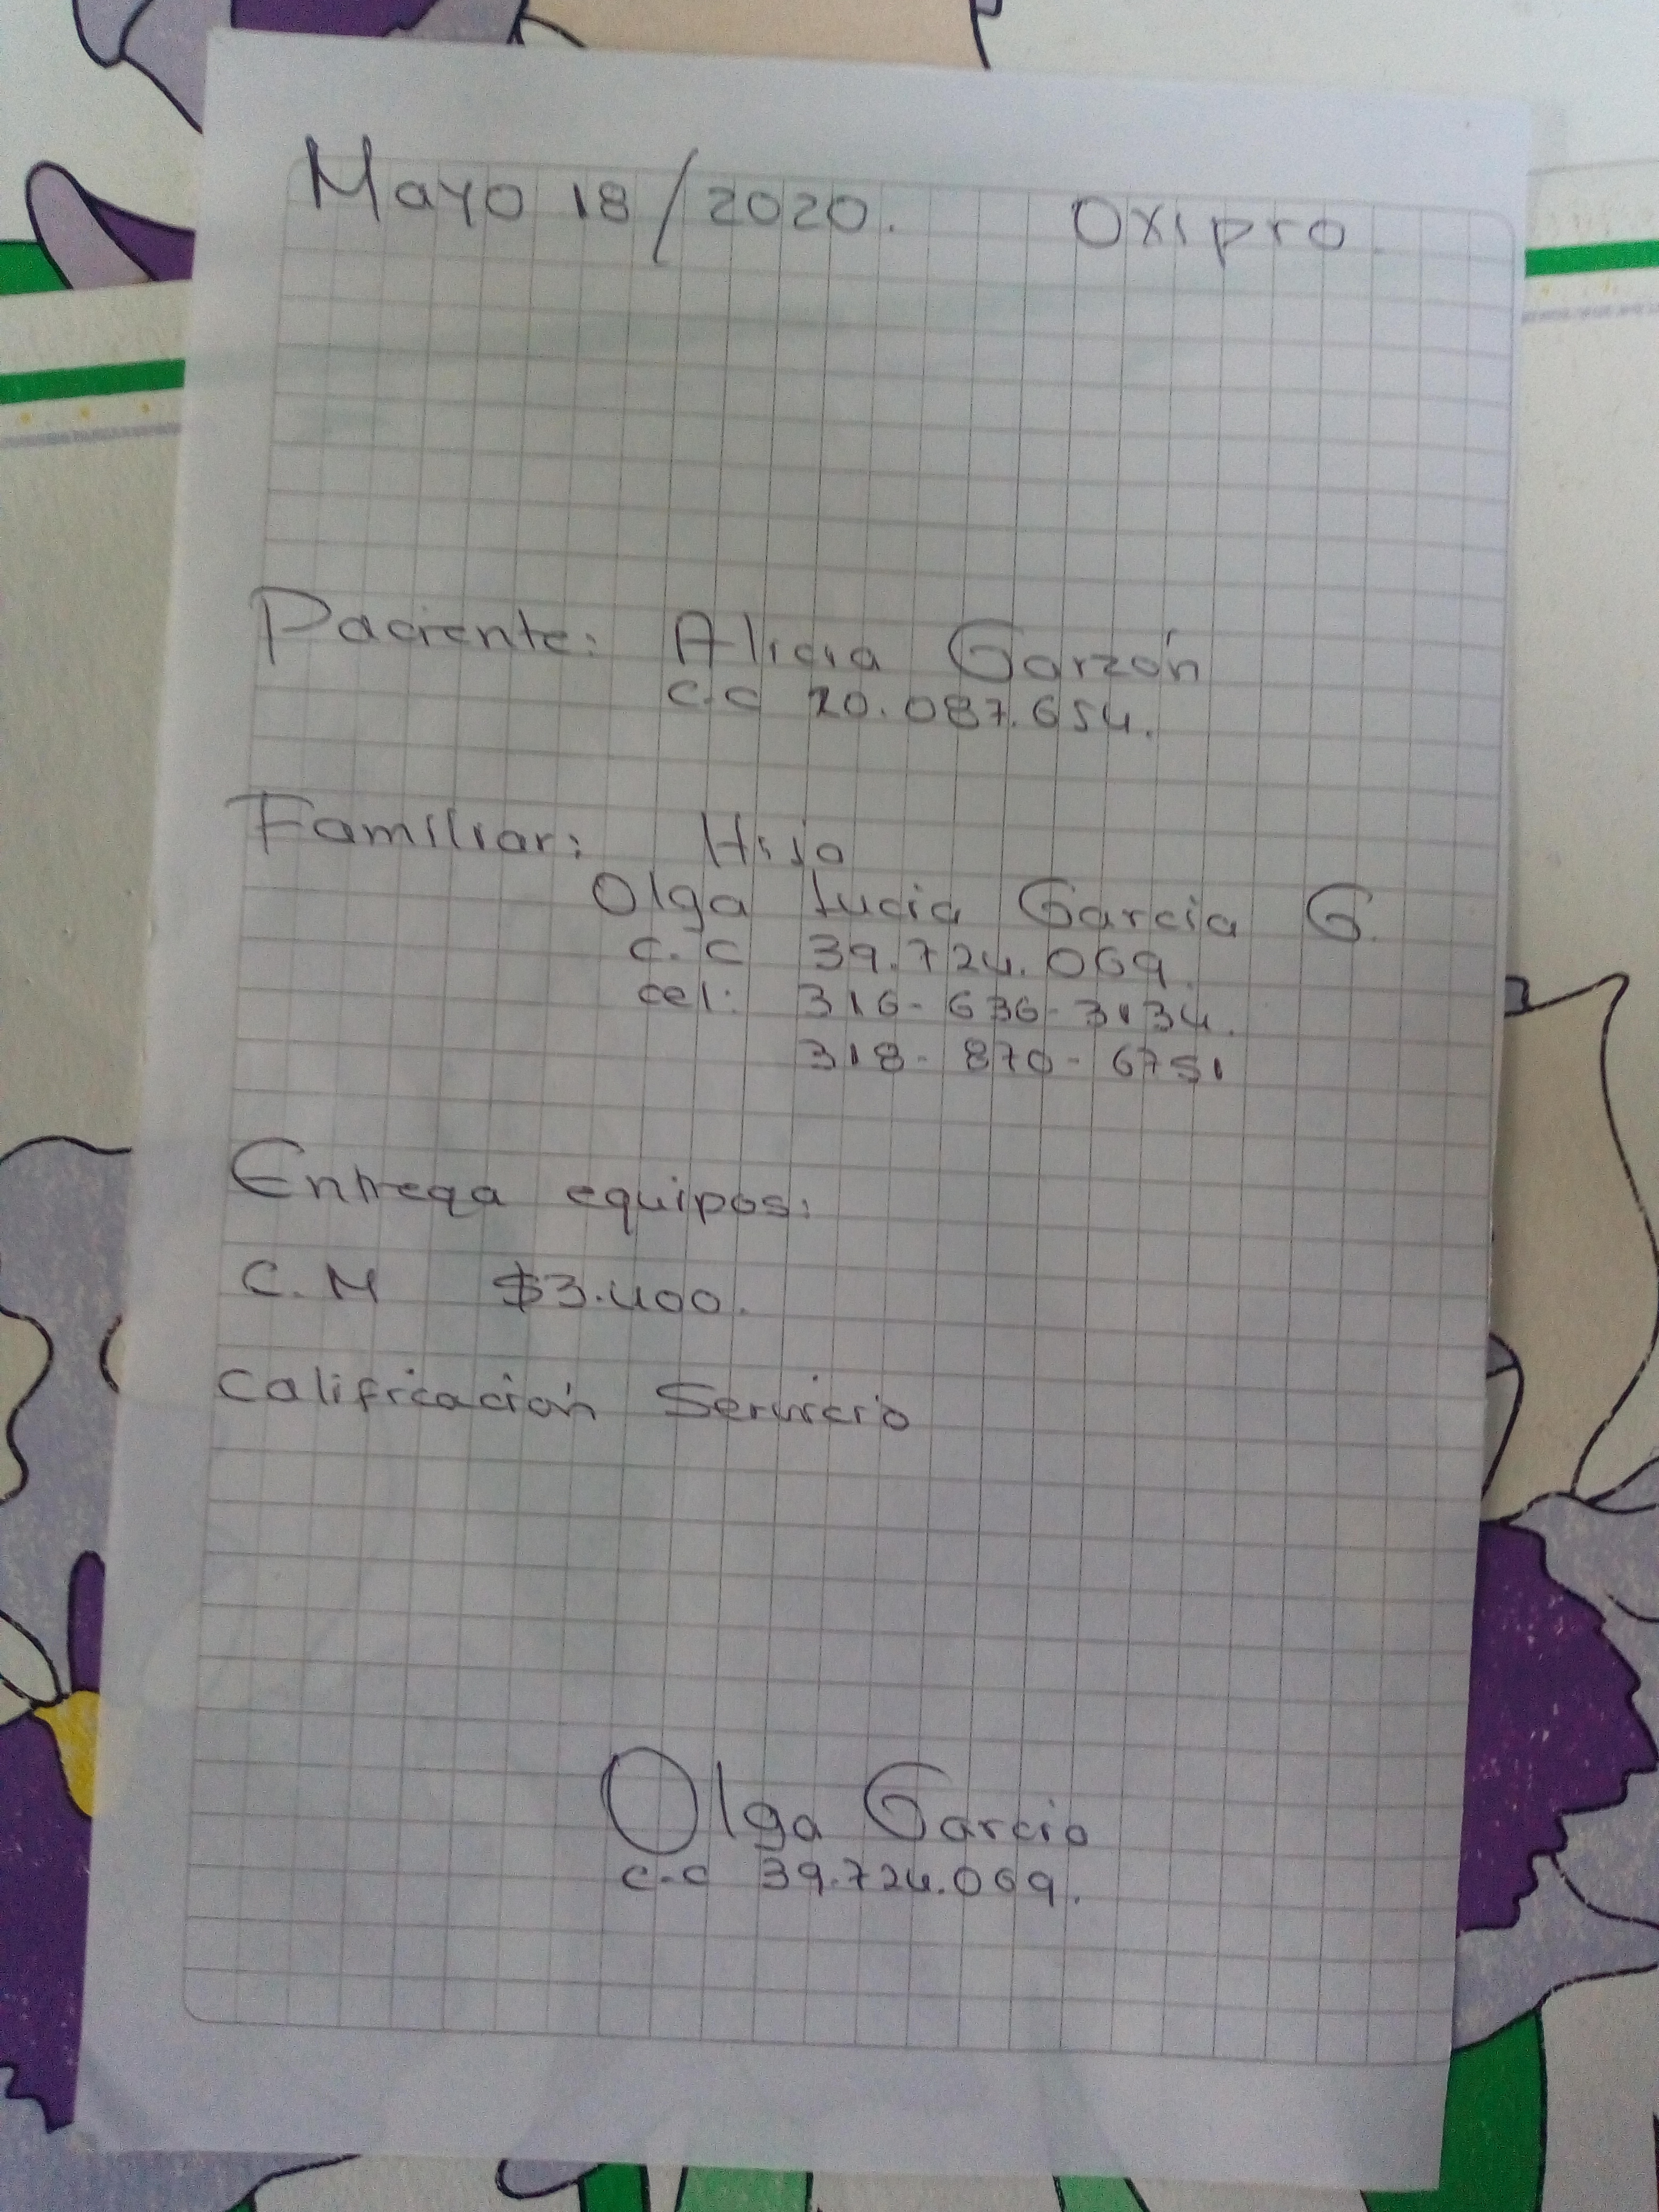 Mayo 18/2020. Oxipro.
Paciente: Alicia Garzón
C.C 20.087.654.
Familiar: Hija
Olga Lucia Garcia G.
C.C 39.724.069.
cel: 316-636-3134.
318-870-6751
Entrega equipos:
C.M $3.400.
Calificación Servicio
Olga Garcia
c.c 39.724.069.